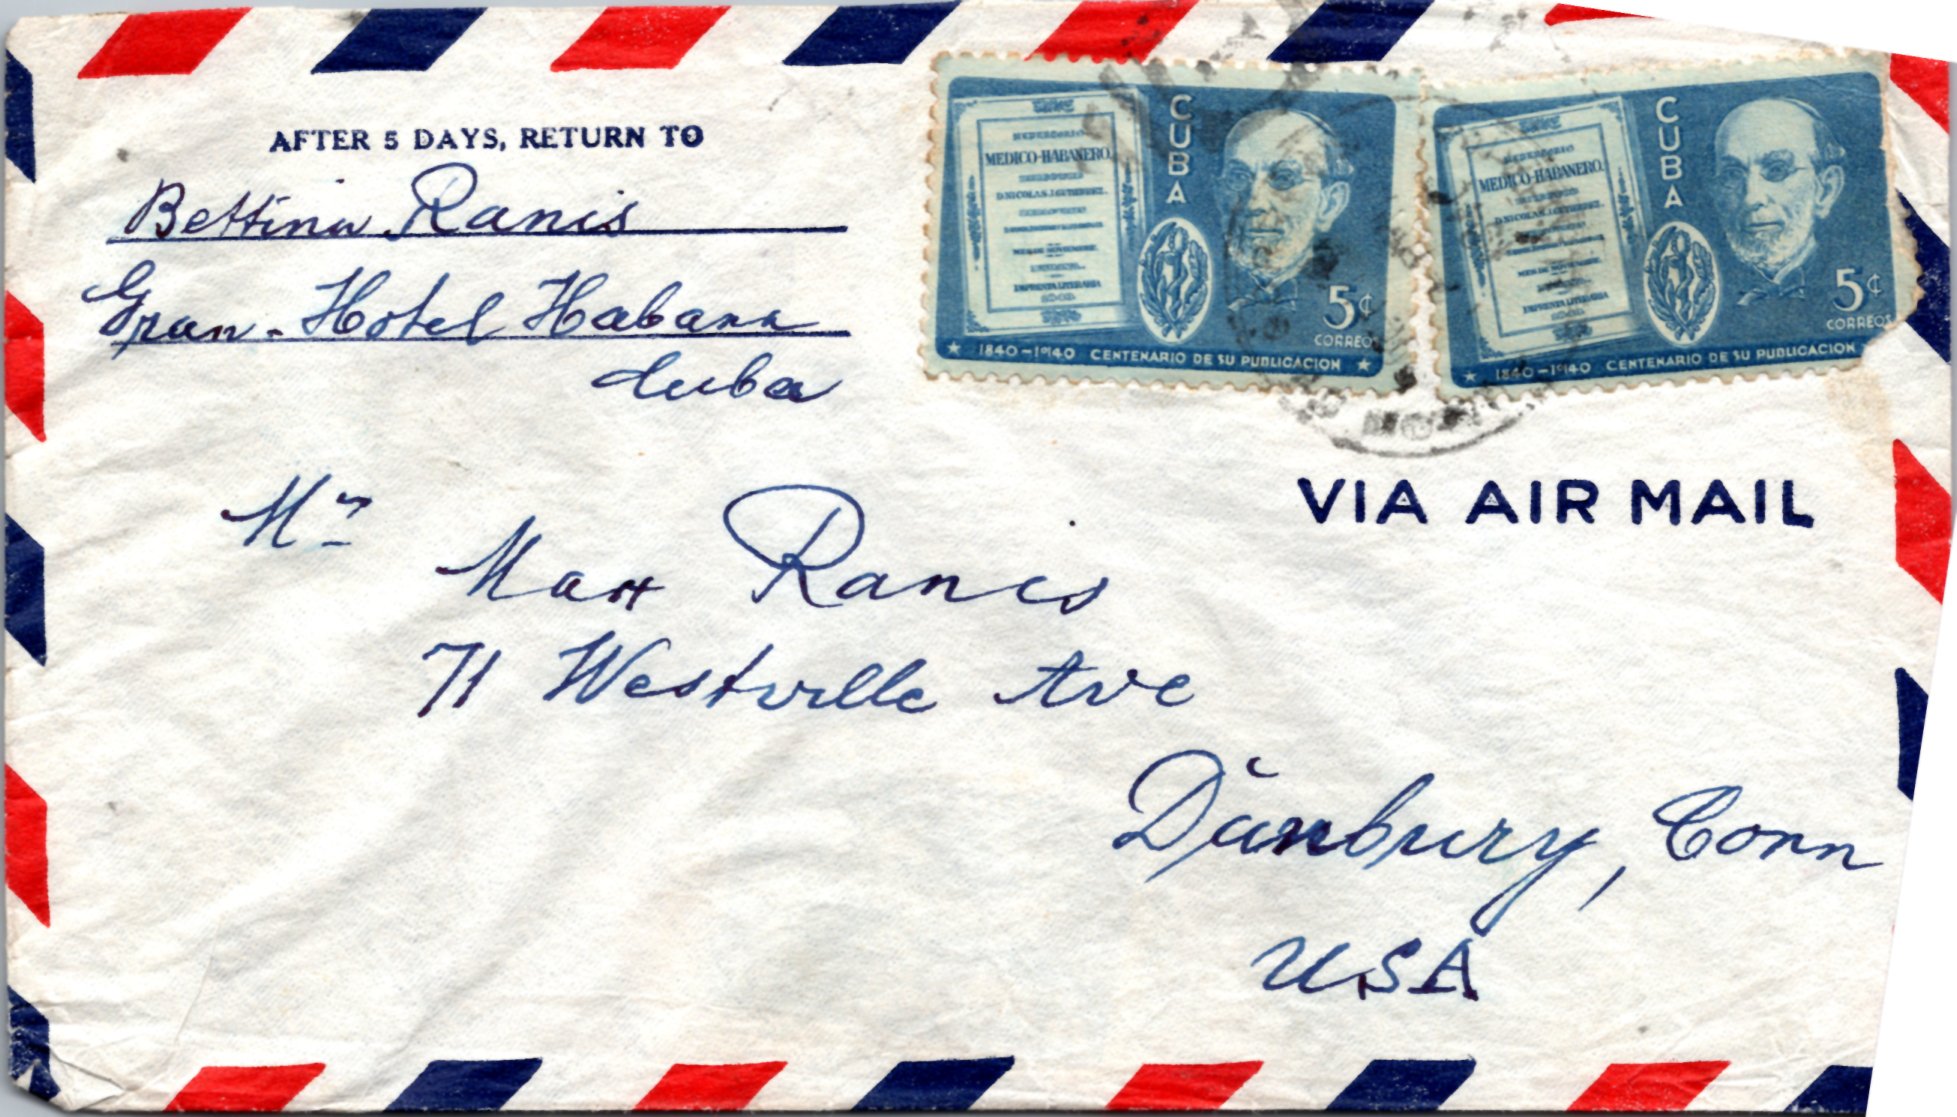 AFTER 5 DAYS, RETURN TO
Bettina Ranis
Gran-Hotel Habana
Cuba
REPERTORIO
MEDICO-HABANERO.
D. NICOLAS J. GUTIERREZ.
IMPRENTA LITERARIA
CUBA
5¢
CORREOS
1840-1940 CENTENARIO DE SU PUBLICACION
REPERTORIO
MEDICO-HABANERO.
D. NICOLAS J. GUTIERREZ.
MES DE NOVIEMBRE
IMPRENTA LITERARIA
CUBA
5¢
CORREOS
1840-1940 CENTENARIO DE SU PUBLICACION
VIA AIR MAIL
Mr
Max Ranis
71 Westville Ave
Danbury, Conn
USA